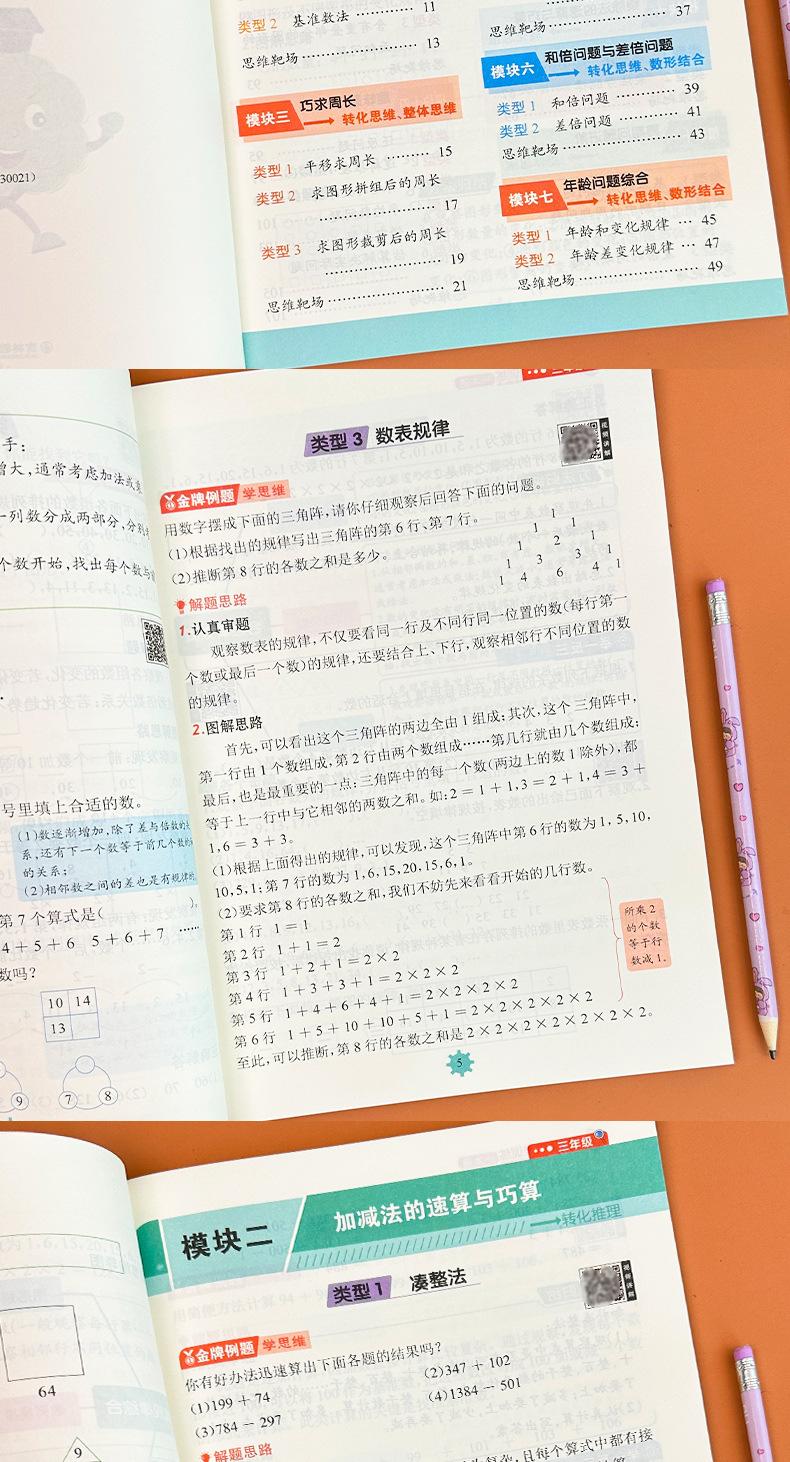 30021)
类型 2 基准数法 ………… 11
思维靶场 ………………… 13
模块三 巧求周长
转化思维、整体思维
类型 1 平移求周长 ……… 15
类型 2 求图形拼组后的周长
………………… 17
类型 3 求图形裁剪后的周长
………………… 19
思维靶场 ………………… 21
思维靶场 ………………… 37
模块六 和倍问题与差倍问题
转化思维、数形结合
类型 1 和倍问题 ………… 39
类型 2 差倍问题 ………… 41
思维靶场 ………………… 43
模块七 年龄问题综合
转化思维、数形结合
类型 1 年龄和变化规律 … 45
类型 2 年龄差变化规律 … 47
思维靶场 ………………… 49
手:
增大,通常考虑加法或
一列数分成两部分,分
个数开始,找出每个数与
号里填上合适的数。
(1)数逐渐增加,除了差与倍数的
系,还有下一个数等于前几个数的
的关系;
(2)相邻数之间的差也是有规律的
第 7 个算式是( )。
4+5+6 5+6+7 ……
数吗?
10 14
13
9 7 8
类型 3 数表规律
视频讲解
金牌例题 学思维
用数字摆成下面的三角阵,请你仔细观察后回答下面的问题。
(1)根据找出的规律写出三角阵的第 6 行、第 7 行。
(2)推断第 8 行的各数之和是多少。
1
1 1
1 2 1
1 3 3 1
1 4 6 4 1
解题思路
1.认真审题
观察数表的规律,不仅要看同一行及不同行同一位置的数(每行第一
个数或最后一个数)的规律,还要结合上、下行,观察相邻行不同位置的数
的规律。
2.图解思路
首先,可以看出这个三角阵的两边全由 1 组成;其次,这个三角阵中,
第一行由 1 个数组成,第 2 行由两个数组成……第几行就由几个数组成;
最后,也是最重要的一点:三角阵中的每一个数(两边上的数 1 除外),都
等于上一行中与它相邻的两数之和。如:2=1+1,3=2+1,4=3+
1,6=3+3。
(1)根据上面得出的规律,可以发现,这个三角阵中第 6 行的数为 1,5,10,
10,5,1;第 7 行的数为 1,6,15,20,15,6,1。
(2)要求第 8 行的各数之和,我们不妨先来看看开始的几行数。
第 1 行 1=1
第 2 行 1+1=2
第 3 行 1+2+1=2×2
第 4 行 1+3+3+1=2×2×2
第 5 行 1+4+6+4+1=2×2×2×2
第 6 行 1+5+10+10+5+1=2×2×2×2×2
至此,可以推断,第 8 行的各数之和是 2×2×2×2×2×2×2。
所乘 2
的个数
等于行
数减 1.
5
64
9
三年级
模块二 加减法的速算与巧算
转化推理
类型 1 凑整法
视频讲解
金牌例题 学思维
你有好办法迅速算出下面各题的结果吗?
(1)199+74 (2)347+102
(3)784-297 (4)1384-501
解题思路
复杂,且每个算式中都有接